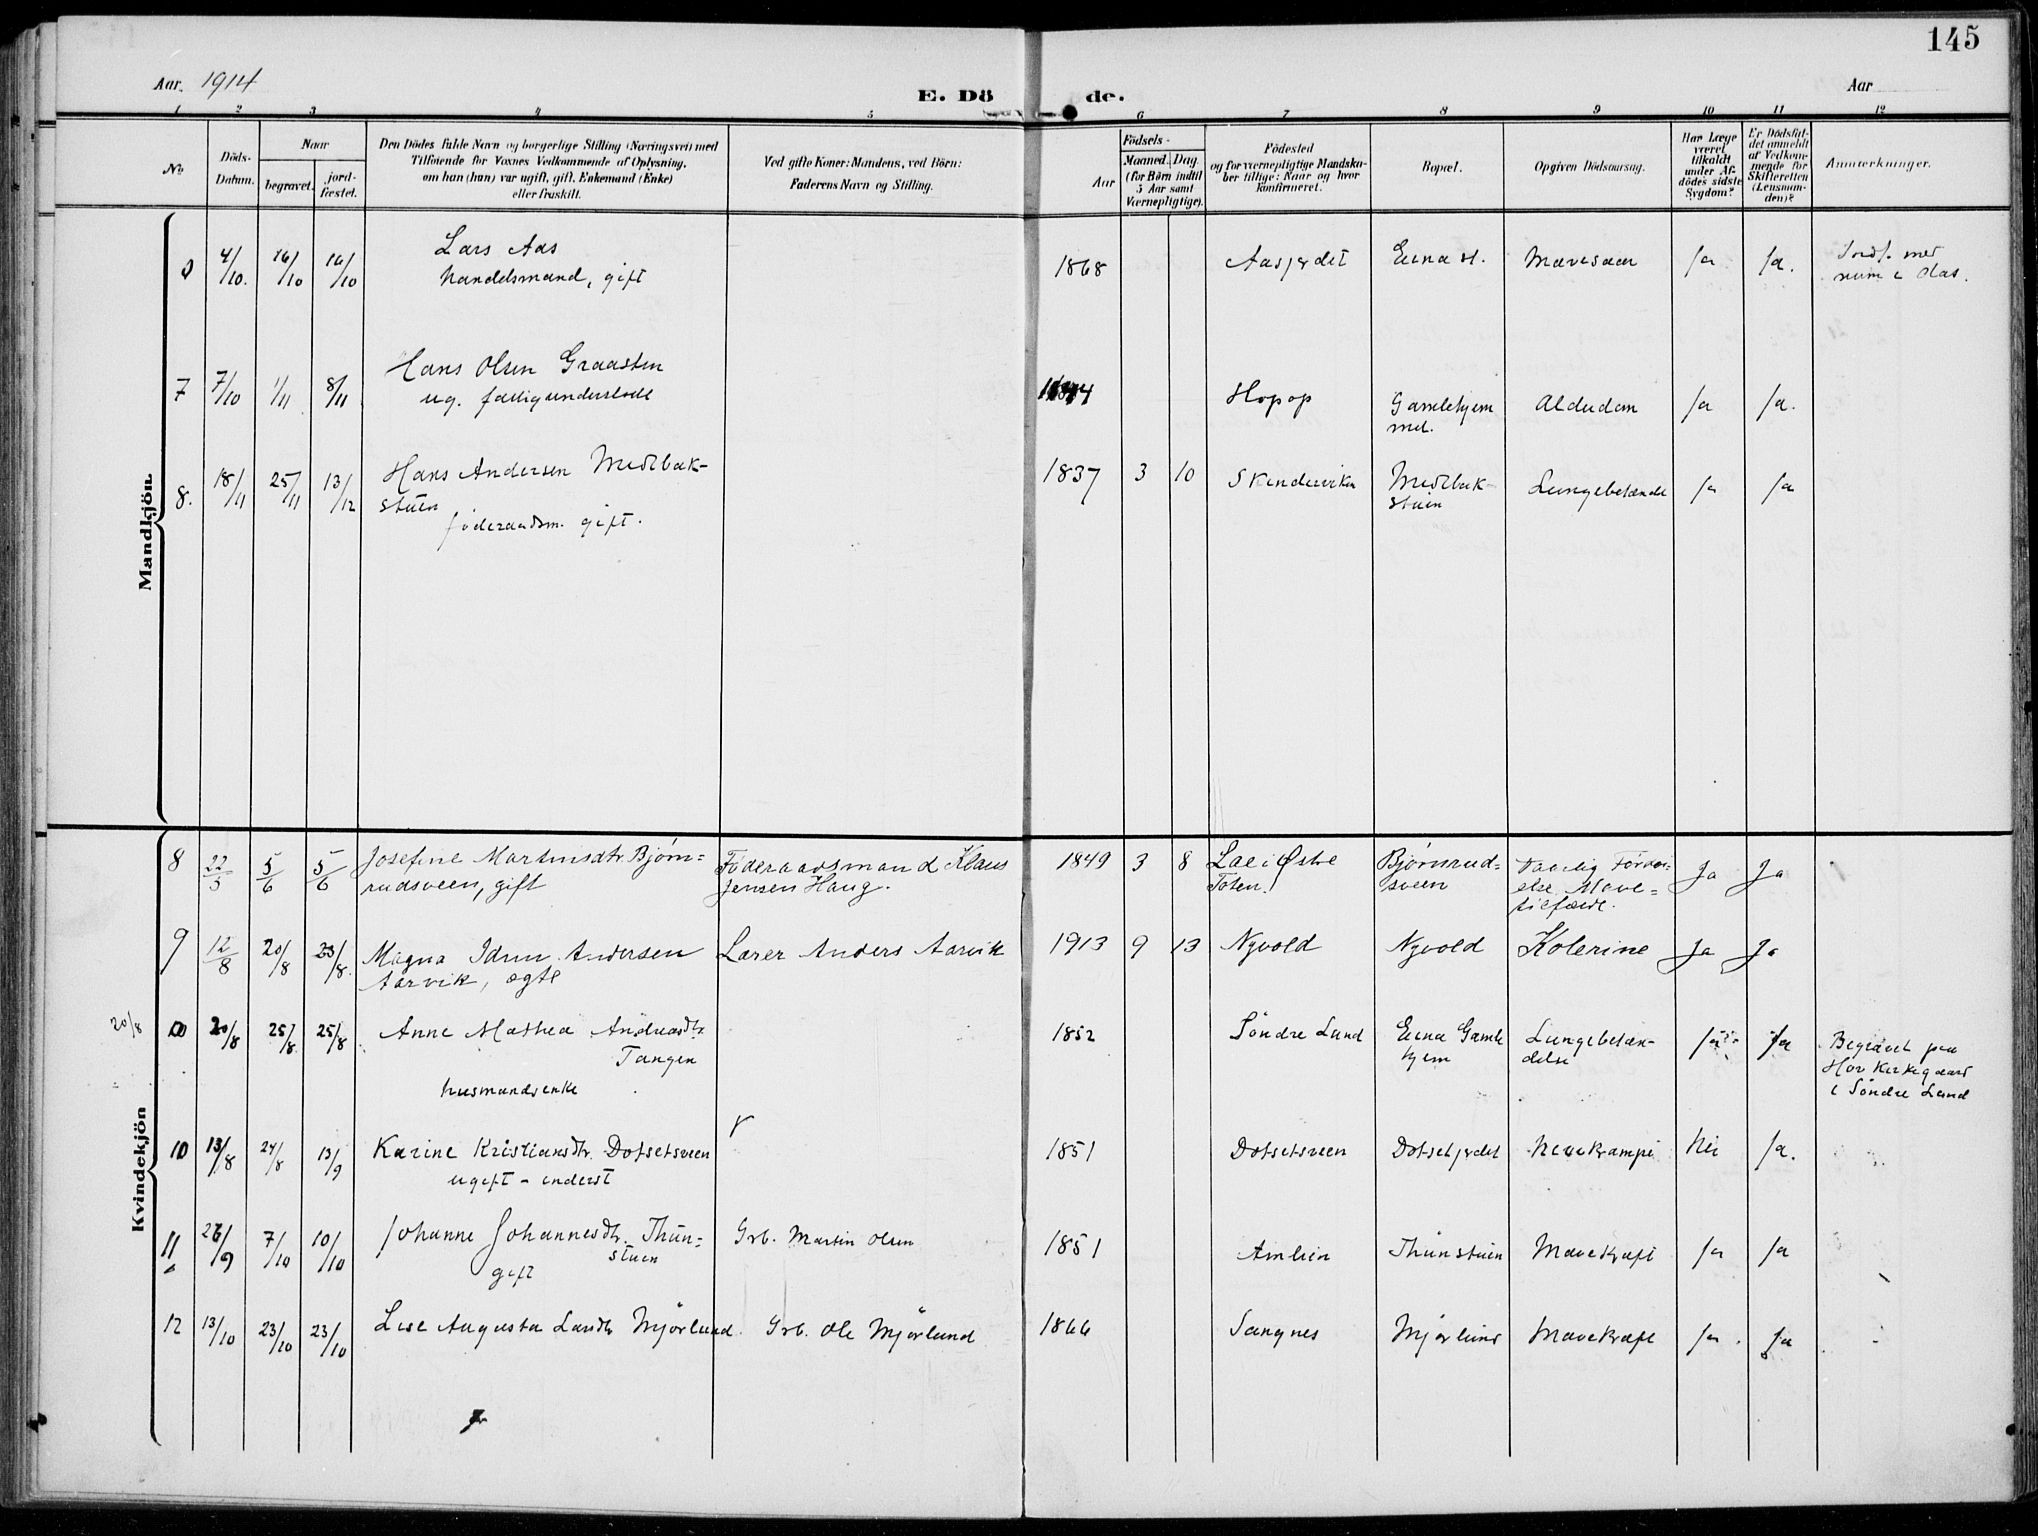 145
Aar. 1914
E. Dö de.
Aar
1 2 3 4 5 6 7 8 9 10 11 12
No
Döds-Datum.
Naar
begravet.
jord-fæstet.
Den Dödes fulde Navn og borgerlige Stilling (Næringsvei) med
Tilföiende for Voxnes Vedkommende af Oplysning,
om han (hun) var ugift, gift, Enkemand (Enke)
eller fraskilt.
Ved gifte Koner: Mandens, ved Börn:
Faderens Navn og Stilling.
Födsels-
Aar
Maaned. Dag
(for Börn indtil
5 Aar samt
Værnepligtige).
Födested
og for værnepligtige Mandska-
ber tillige: Naar og hvor
konfirmeret.
Bopæl.
Opgiven Dödsaarsag.
Har Læge
været
tilkaldt
under Af-
dödes sidste
Sygdom?
Er Dödsfal-
det anmeldt
af Vedkom-
mende for
Skifteretten
(Lensman-
den)?
Anmærkninger.
Mandkjön.
4/10. 16/10 16/10 Lars Aas
Handelsmand, gift
1868 Aasjordet Eina st. Mavesaar Ja Ja.
7 7/10 1/11 8/11 Hans Olsen Graasten
ug. fattigunderstöd
Gamlehjem
Ja Ja.
8. 18/11 25/11 13/12 Hans Andersen Medbak-
stuen
föderaadsm. gift.
1837 3 10 Medbak-
stuen Lungebetænde Ja Ja
Kvindekjön
8 22/5 5/6 5/6 Josefine Martinsdtr. Bjørn=
rudsveen, gift
Föderaadsmand Klaus
Jensen Haug.
1849 3 8 i Østre
Toten. Bjørnrud-
sveen
Ja Ja
9 12/8 20/8 23/8. Magna Idun Andersen
Aarvik, ægte
Lærer Anders Aarvik
1913 9 13 Nyvold Nyvold Kolerine Ja Ja
20/8
20/8 25/8 25/8 Anne Mathea Andreasdtr.
Tangen
husmandsenke
1852 Söndre Land Eina Gamle
hjem Lungebetæn-
delse Ja Ja Begravet paa
Hov Kirkegaard
i Söndre Land
10 13/8 24/8 13/9 Karine Kristiansdtr. Dotsetsveen
ugift - inderst
1851 Dotsetsveen Dotsetjordet Mavekrampe Nei Ja.
11 26/9 7/10 10/10 Johanne Johannesdtr. Thun=
stuen
gift
Grb. Martin Olsen
1851 Amlien Thunstuen Mavekræft Ja Ja
12 13/10 23/10 23/10 Lise Augusta Larsdtr Mjörlund
Grb. Ole Mjörlund
1866 Sangnes Mjörlund Mavekræft Ja. Ja